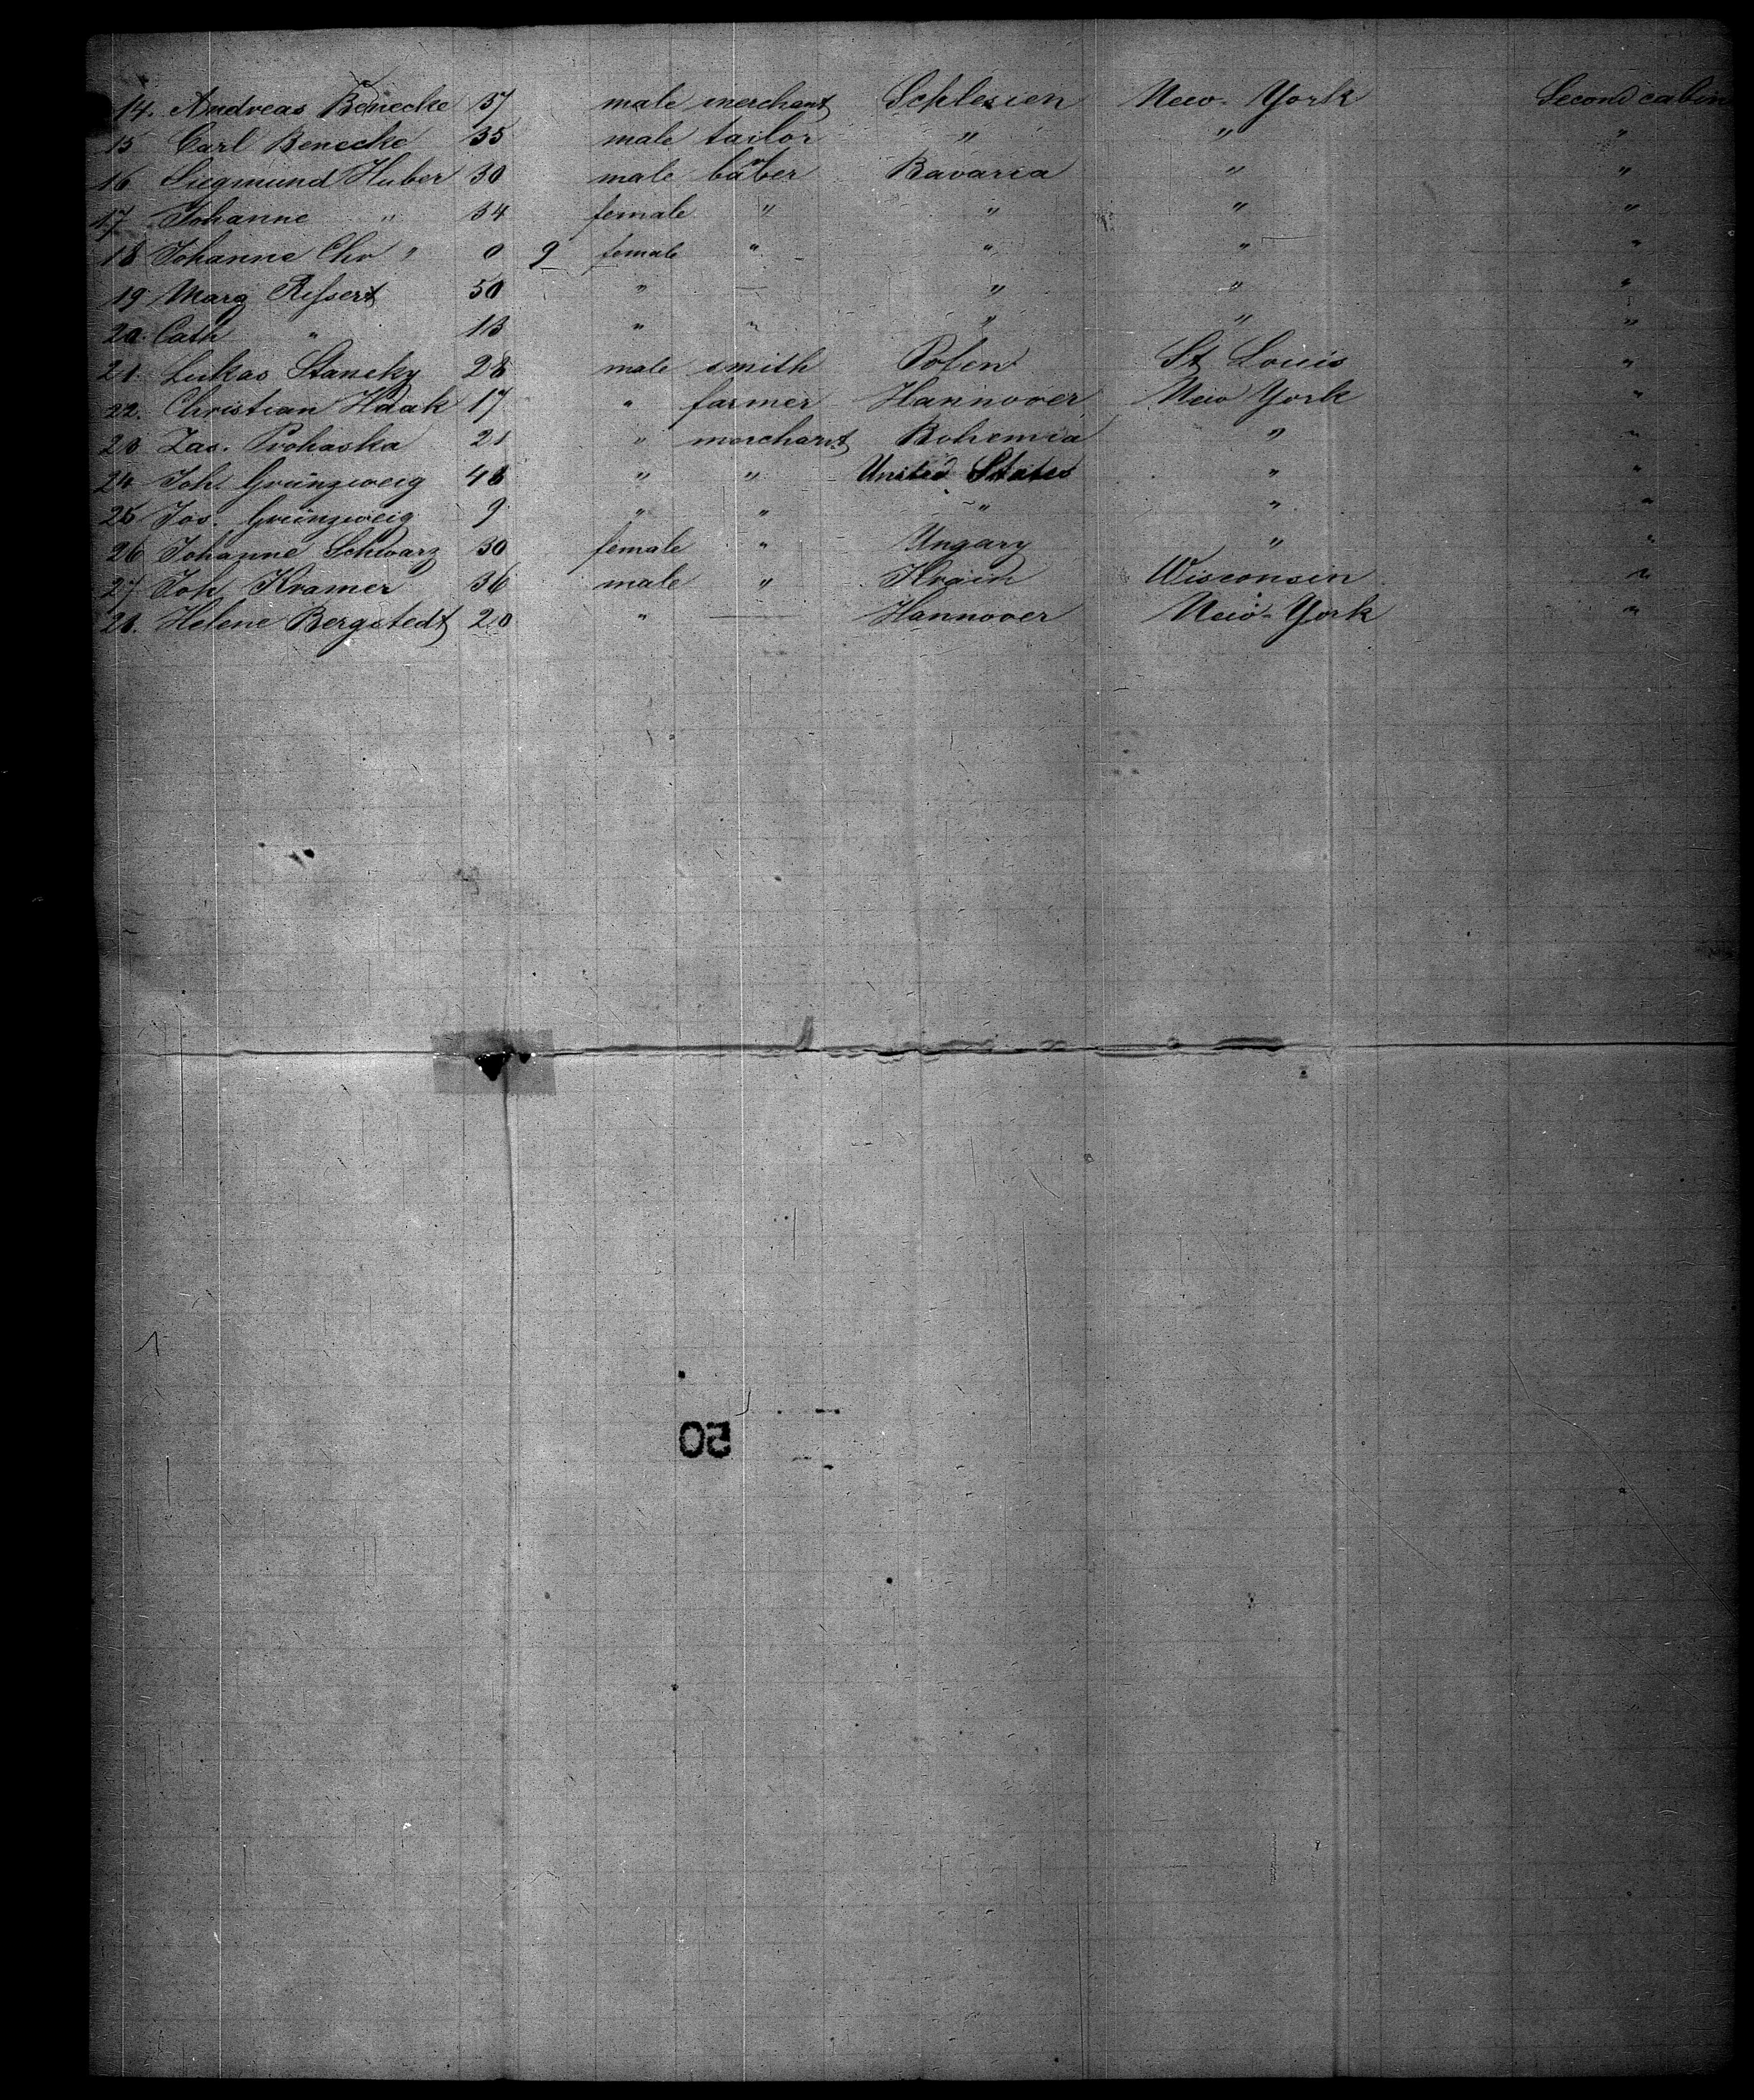 14. Andreas Benecke 37 male merchant Schlesien New-York Second cabin
15 Carl Benecke 35 male tailor " " "
16 Siegmund Huber 30 male barber Bavaria " "
17 Johanne " 34 female " " " "
18 Johanne Chr " 0 9 female " " " "
19 Marg Reſsert 50 " — " " "
20. Cath " 13 " " " " "
21. Lukas Staneky 28 male smith Poſen St Louis "
22. Christian Haak 17 " farmer Hannover New York "
23 Zac. Prohaska 21 " merchant Bohemia " "
24 Joh. Grünzweig 48 " " United States " "
25 Jos. Grünzweig 9 " " " " "
26 Johanne Schwarz 30 female " Ungary " "
27 Joh. Kramer 36 male " Krain Wisconsin "
28. Helene Bergstedt 20 " — Hannover New-York "
50